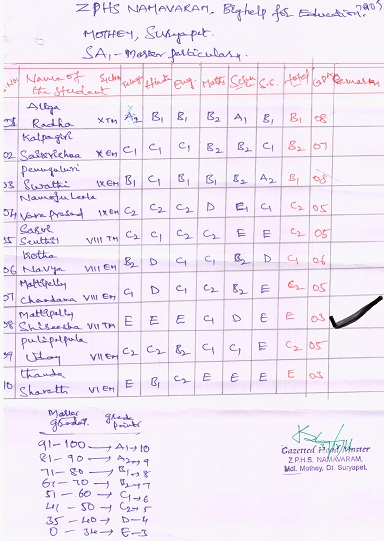 Z.P.H.S NAMAVARAM, Big help for Education.
MOTHEY, Suryapet.
SA1 - Master particulars.
Name of the Student Telugu Hindi Eng Maths S.S. total GPA
Allga
Radha X TM A2 B1 B1 B2 A1 B1 B1 08
Kalpagiri
02 X EM C1 C1 C1 B2 B2 C1 B2 07
03 Swathi IX EM B1 C1 B1 B1 B2 A2 B1 08
04 Vara Prasad IX EM C2 C2 C2 D E C1 C2 05
VIII TM C2 C2 C2 C2 E E C2 05
Kotha
06 Navya VIII EM B2 D C1 C1 B2 D C1 06
Mattipelly
07 Chandana VIII EM C1 D C1 C2 B2 E C2 05
Mattipelly
08 Shireesha VII TM E E E C1 D E E 03
pulipalpula
09 Uday VII EM C2 C2 B2 C1 C1 E C2 05
thanda
10 Sharath VI EM E B1 C2 E E E E 03
Marks grades grade points
91-100 → A1 → 10
81-90 → A2 → 9
71-80 → B1 → 8
61-70 → B2 → 7
51-60 → C1 → 6
41-50 → C2 → 5
35-40 → D-4
0-34 → E-3
Gazetted Head Master
Z.P.H.S. NAMAVARAM,
Mdl. Mothey, Dt. Suryapet.